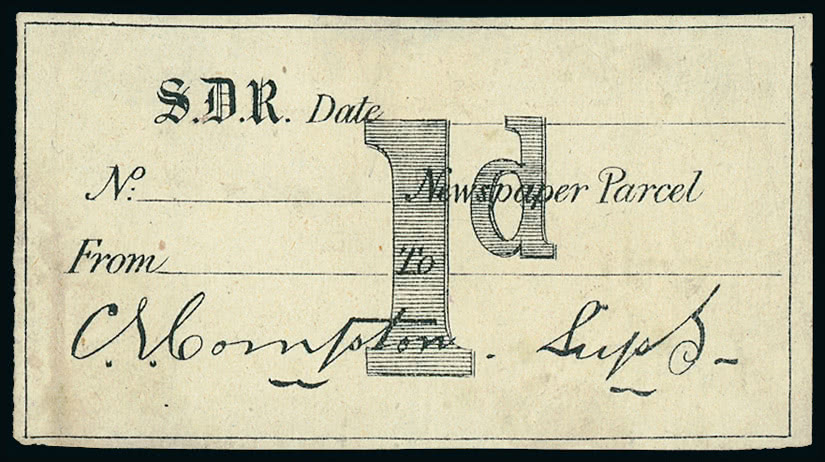 S.D.R. Date
No: Newspaper Parcel
From To
C. E. Compton. Supt.
1d